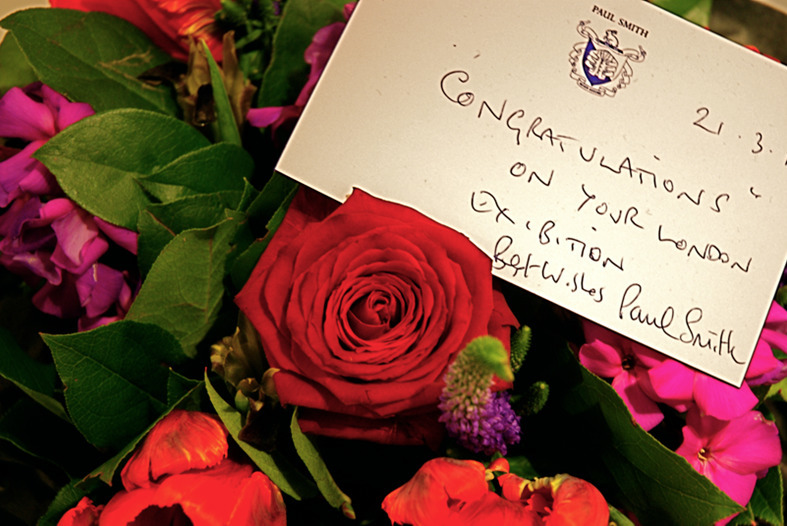 PAUL SMITH
21.3.
CONGRATULATIONS
ON YOUR LONDON
EXIBITION
Best Wishes Paul Smith